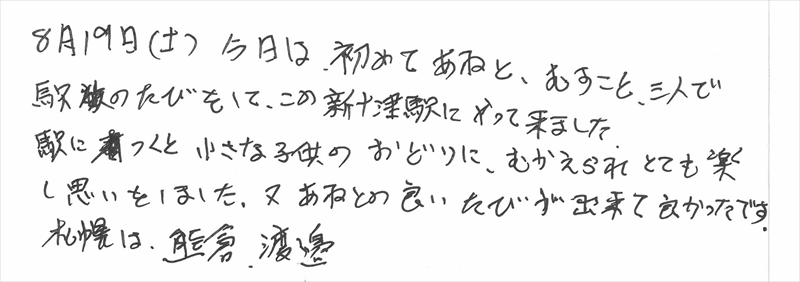 8月19日(土) 今日は、初めてあねと、むすこと、三人で
駅のたびをして、この新十津駅にやって来ました
駅につくと小さな子供のおどりに、むかえられとても楽
し思いをしました。又あねとの良いたびが出来て良かったです。
札幌は、熊倉、渡邉